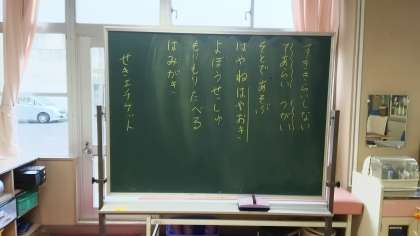 すききらいしない
てあらい うがい
そとであそぶ
はやねはやおき
よぼうせっしゅ
もりもりたべる
はみがき
せきエチケット